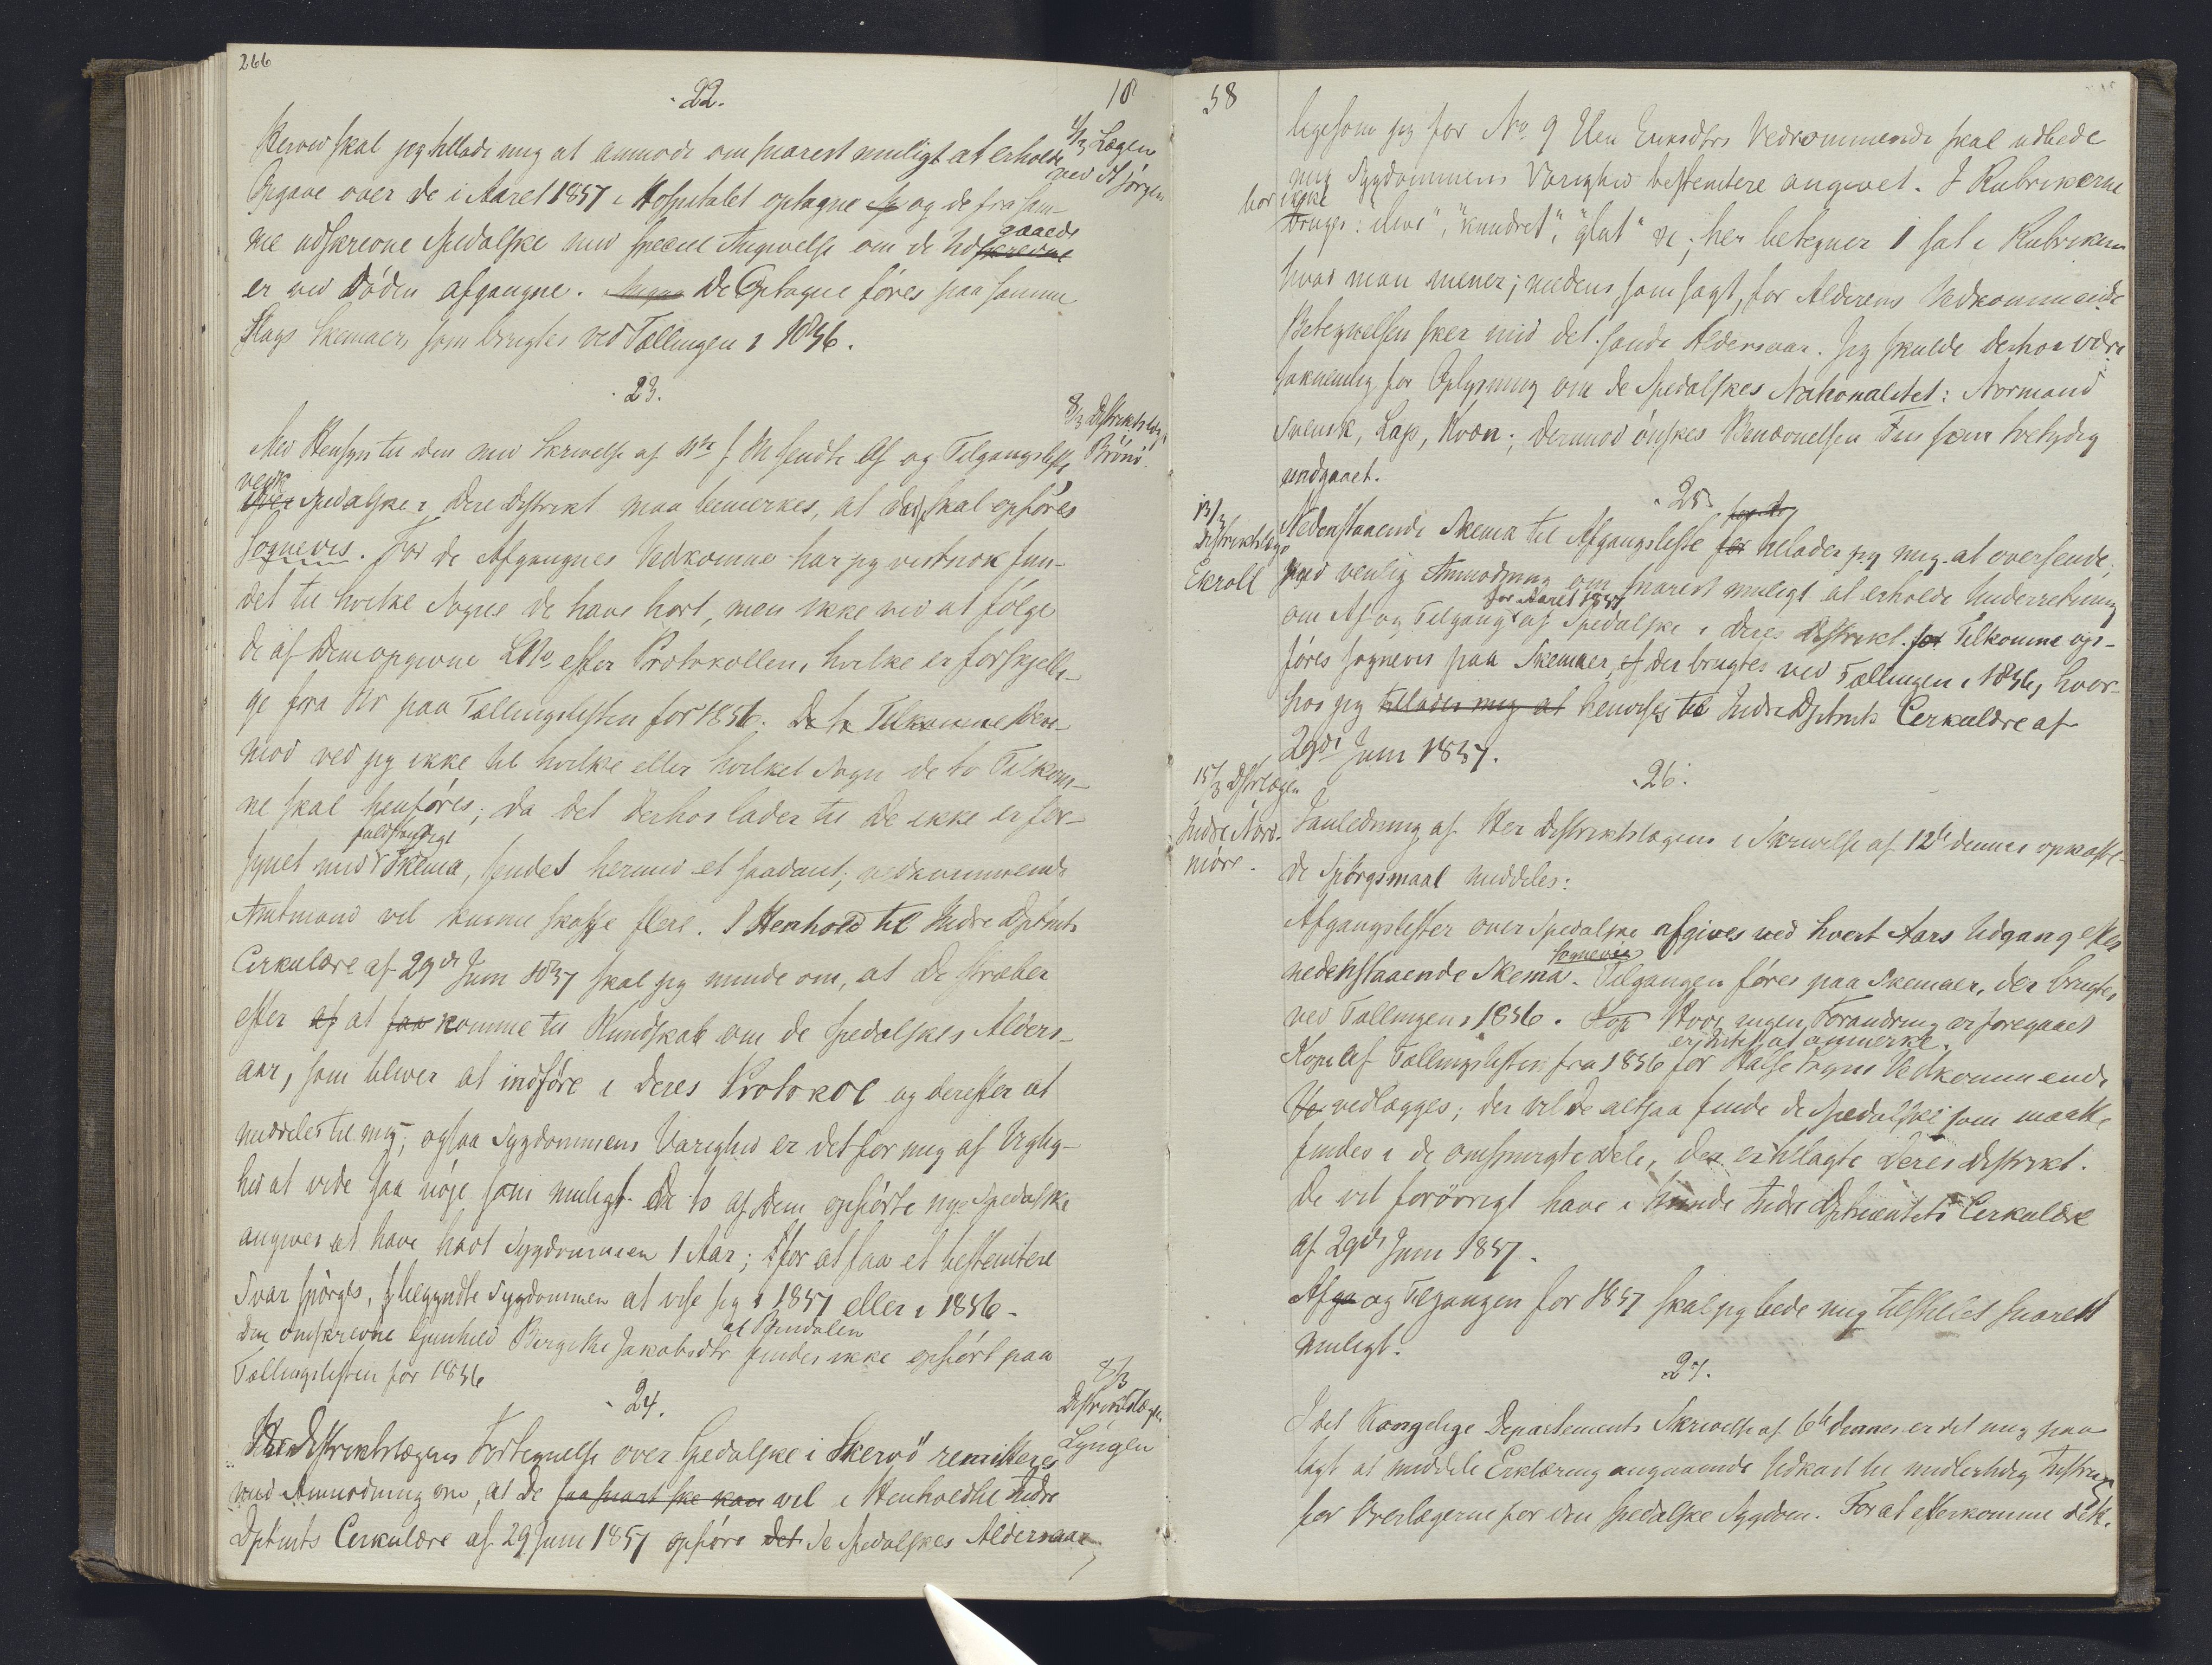 266
22.
18
Herved skal jeg tillade mig at anmode om snarest muligt at erholde
4/3 Lægen
ved St Jørgen
Opgave over de i Aaret 1857 i Hospitalet optagne Sp og de fra sam-
me udskrevne Spedalske med speciel Angivelse om de Udskrevne
gaaede
er ved Døden afgangne. De Optagne føres paa samme
Slags Skemaer, som brugtes ved Tællingen i 1856.
23.
8/3 Distriktslæge
Brönö.
Med Hensyn til den med Skrivelse af sendte Af og Tilgangsliste
vedk
over Spedalske i Dere Distrikt maa bemerkes, at der skal opføres
sognevis. For de Afgangnes Vedkomme har jeg vistnok fun-
det til hvilke Sogne de have hørt, men ikke ved at følge
de af Dem opgivne LNo efter Protokollen, hvilke er forskjelli-
ge fra Nr paa Tællingslisten for 1856. De to Tilkomne Der-
mod ved jeg ikke til hvilke eller hvilket Sogn de to Tilkom-
ne skal henføres; da det derhos lader til De ikke er for-
fuldstændigt
synet med Skema, sendes hermed et saadant; vedkommende
Amtmand vil kunne skaffe flere. I Henhold til Indre Dptmts
Cirkulære af 29de Juni 1857 skal jeg minde om, at De stræber
efter af at faa komme til Kundskab om de Spedalskes Alders-
aar, som bliver at indføre i Deres Protokol og derefter at
meddeles til mig; ogsaa Sygdommens Varighed er det for mig af Vigtig-
hed at vide saa nøje som muligt. De to af Dem opførte nye Spedalske
angives at have havt Sygdommen 1 Aar; for at faa et bestemtere
Svar spørges, begyndte Sygdommen at vise sig i 1857 eller i 1856.
af Brudalen
Den omskrevne Gunhild Birgithe Jakobsdtr findes ikke opført paa
Tællingslisten for 1856
24.
8/3
Distriktslægen
Lyngen
Hr Distriktslægens Fortegnelse over Spedalske i Skervö remitteres
med Anmodning om, at De saa snart ske kan vil i Henhold til Indre
Dptmts Cirkulære af 29 Juni 1857 opføre det de Spedalskes Aldersaar,
58
ligesom jeg for No 9 Elen Eriksdtrs Vedkommende skal udbede
mig Sygdommens Varighed bestemtere angivet. I Rubrikerne
bør ikke
bruges: "knudret", "glat" ; her betegner 1 sat i Rubriken
hvad man mener; medens som sagt, for Alderens Vedkommende
Betegnelsen sker med det sande Aldersaar. Jeg skulde derhos være
taknemlig for Oplysning om de Spedalskes Nationalitet: Normand
Svensk, Lap, Kvæn; dermod ønskes Benævnelsen Fin som tvetydig
undgaaet.
25.
13/3
Distriktslæge
Ekroll
Nedenstaaende Skema til Afgangsliste for tillader jeg mig at oversende,
med venlig Anmodning om snarest muligt at erholde Underretning
for Aaret 1857
om Af og Tilgang af Spedalske i Deres Distrikt. for Tilkomne op-
føres sognevis paa Skemaer, der brugtes ved Tællingen i 1856, hvor-
hos jeg tillader mig at henviser til Indre Dptmts Cirkulære af
29de Juni 1857.
26.
15/3 Dstrlægen
Indre Nord-
møre.
I anledning af Herr Distriktslægens i Skrivelse af 12te dennes opkaste-
de Spørgsmaal meddeles:
Afgangslister over Spedalske afgives ved hvert Aars Udgang efter
sognevis
nedenstaaende Skema. Tilgangen føres paa Skemaer, der brugtes
ved Tællingen i 1856. Kopi Hvor ingen Forandring er foregaaet
er intet at anmerke.
Kopi af Tællingslisten fra 1856 for Halse Sogns Vedkommende
vedlægges; der vil De altsaa finde de Spedalske som maatte
findes i de omspurgte Dele, der er tillagte Deres Distrikt.
De vil forövrigt have i Minde Indre Dptmentets Cirkulære
af 29de Juni 1857.
Afga og Tilgangen for 1857 skal jeg bede mig tilstillet snarest
muligt.
27.
I det Kongelige Departements Skrivelse af 6te dennes er det mig paa-
lagt at meddele Erklæring angaaende Udkast til midlertidig Instrux
for Overlægerne for den spedalske Sygdom. For at efterkomme dette